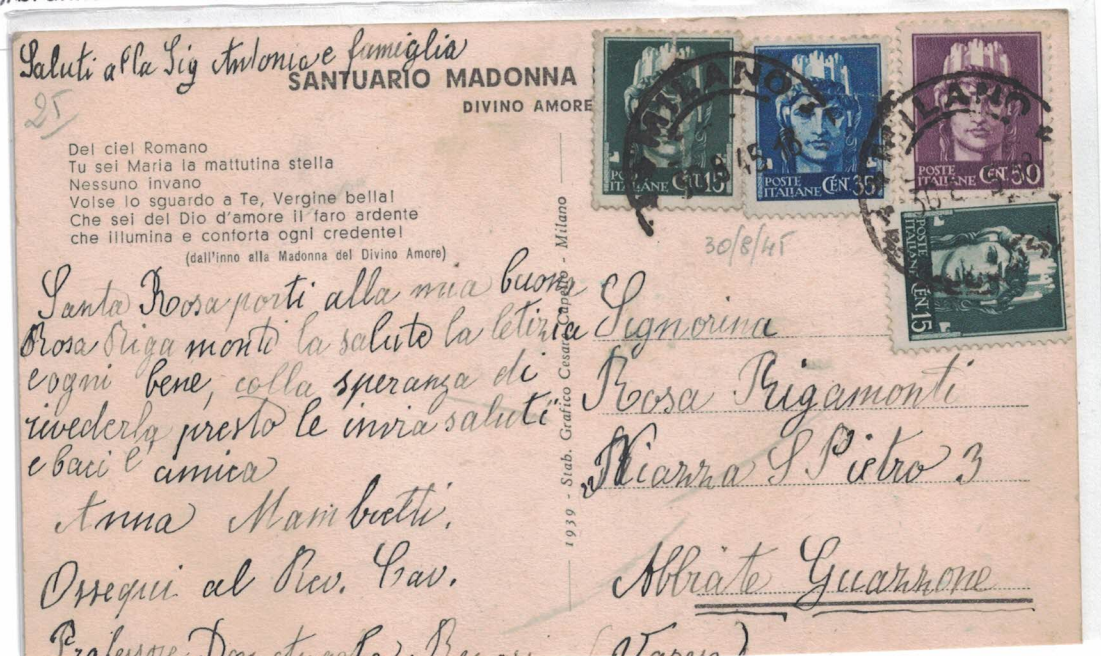 Saluti alla Sig Antonia e famiglia
SANTUARIO MADONNA
DIVINO AMORE
25
Del ciel Romano
Tu sei Maria la mattutina stella
Nessuno invano
Volse lo sguardo a Te, Vergine bella!
Che sei del Dio d'amore il faro ardente
che illumina e conforta ogni credente!
(dall'inno alla Madonna del Divino Amore)
Santa Rosa porti alla mia buona
Rosa Rigamonti la salute la letizia
e ogni bene, colla speranza di
rivederla presto le invia saluti
e baci l'amica
Anna Mambretti.
Ossequi al Rev. Cav.
Professore Don
1939 - Stab. Grafico Cesare Capello - Milano
POSTE ITALIANE CEN. 15
POSTE ITALIANE CEN. 35
POSTE ITALIANE CEN. 50
POSTE ITALIANE CEN. 15
MILANO
8.45.18
MILANO
30/8/45
Signorina
Rosa Rigamonti
Piazza S Pietro 3
Abbiate Guazzone
(Varese)